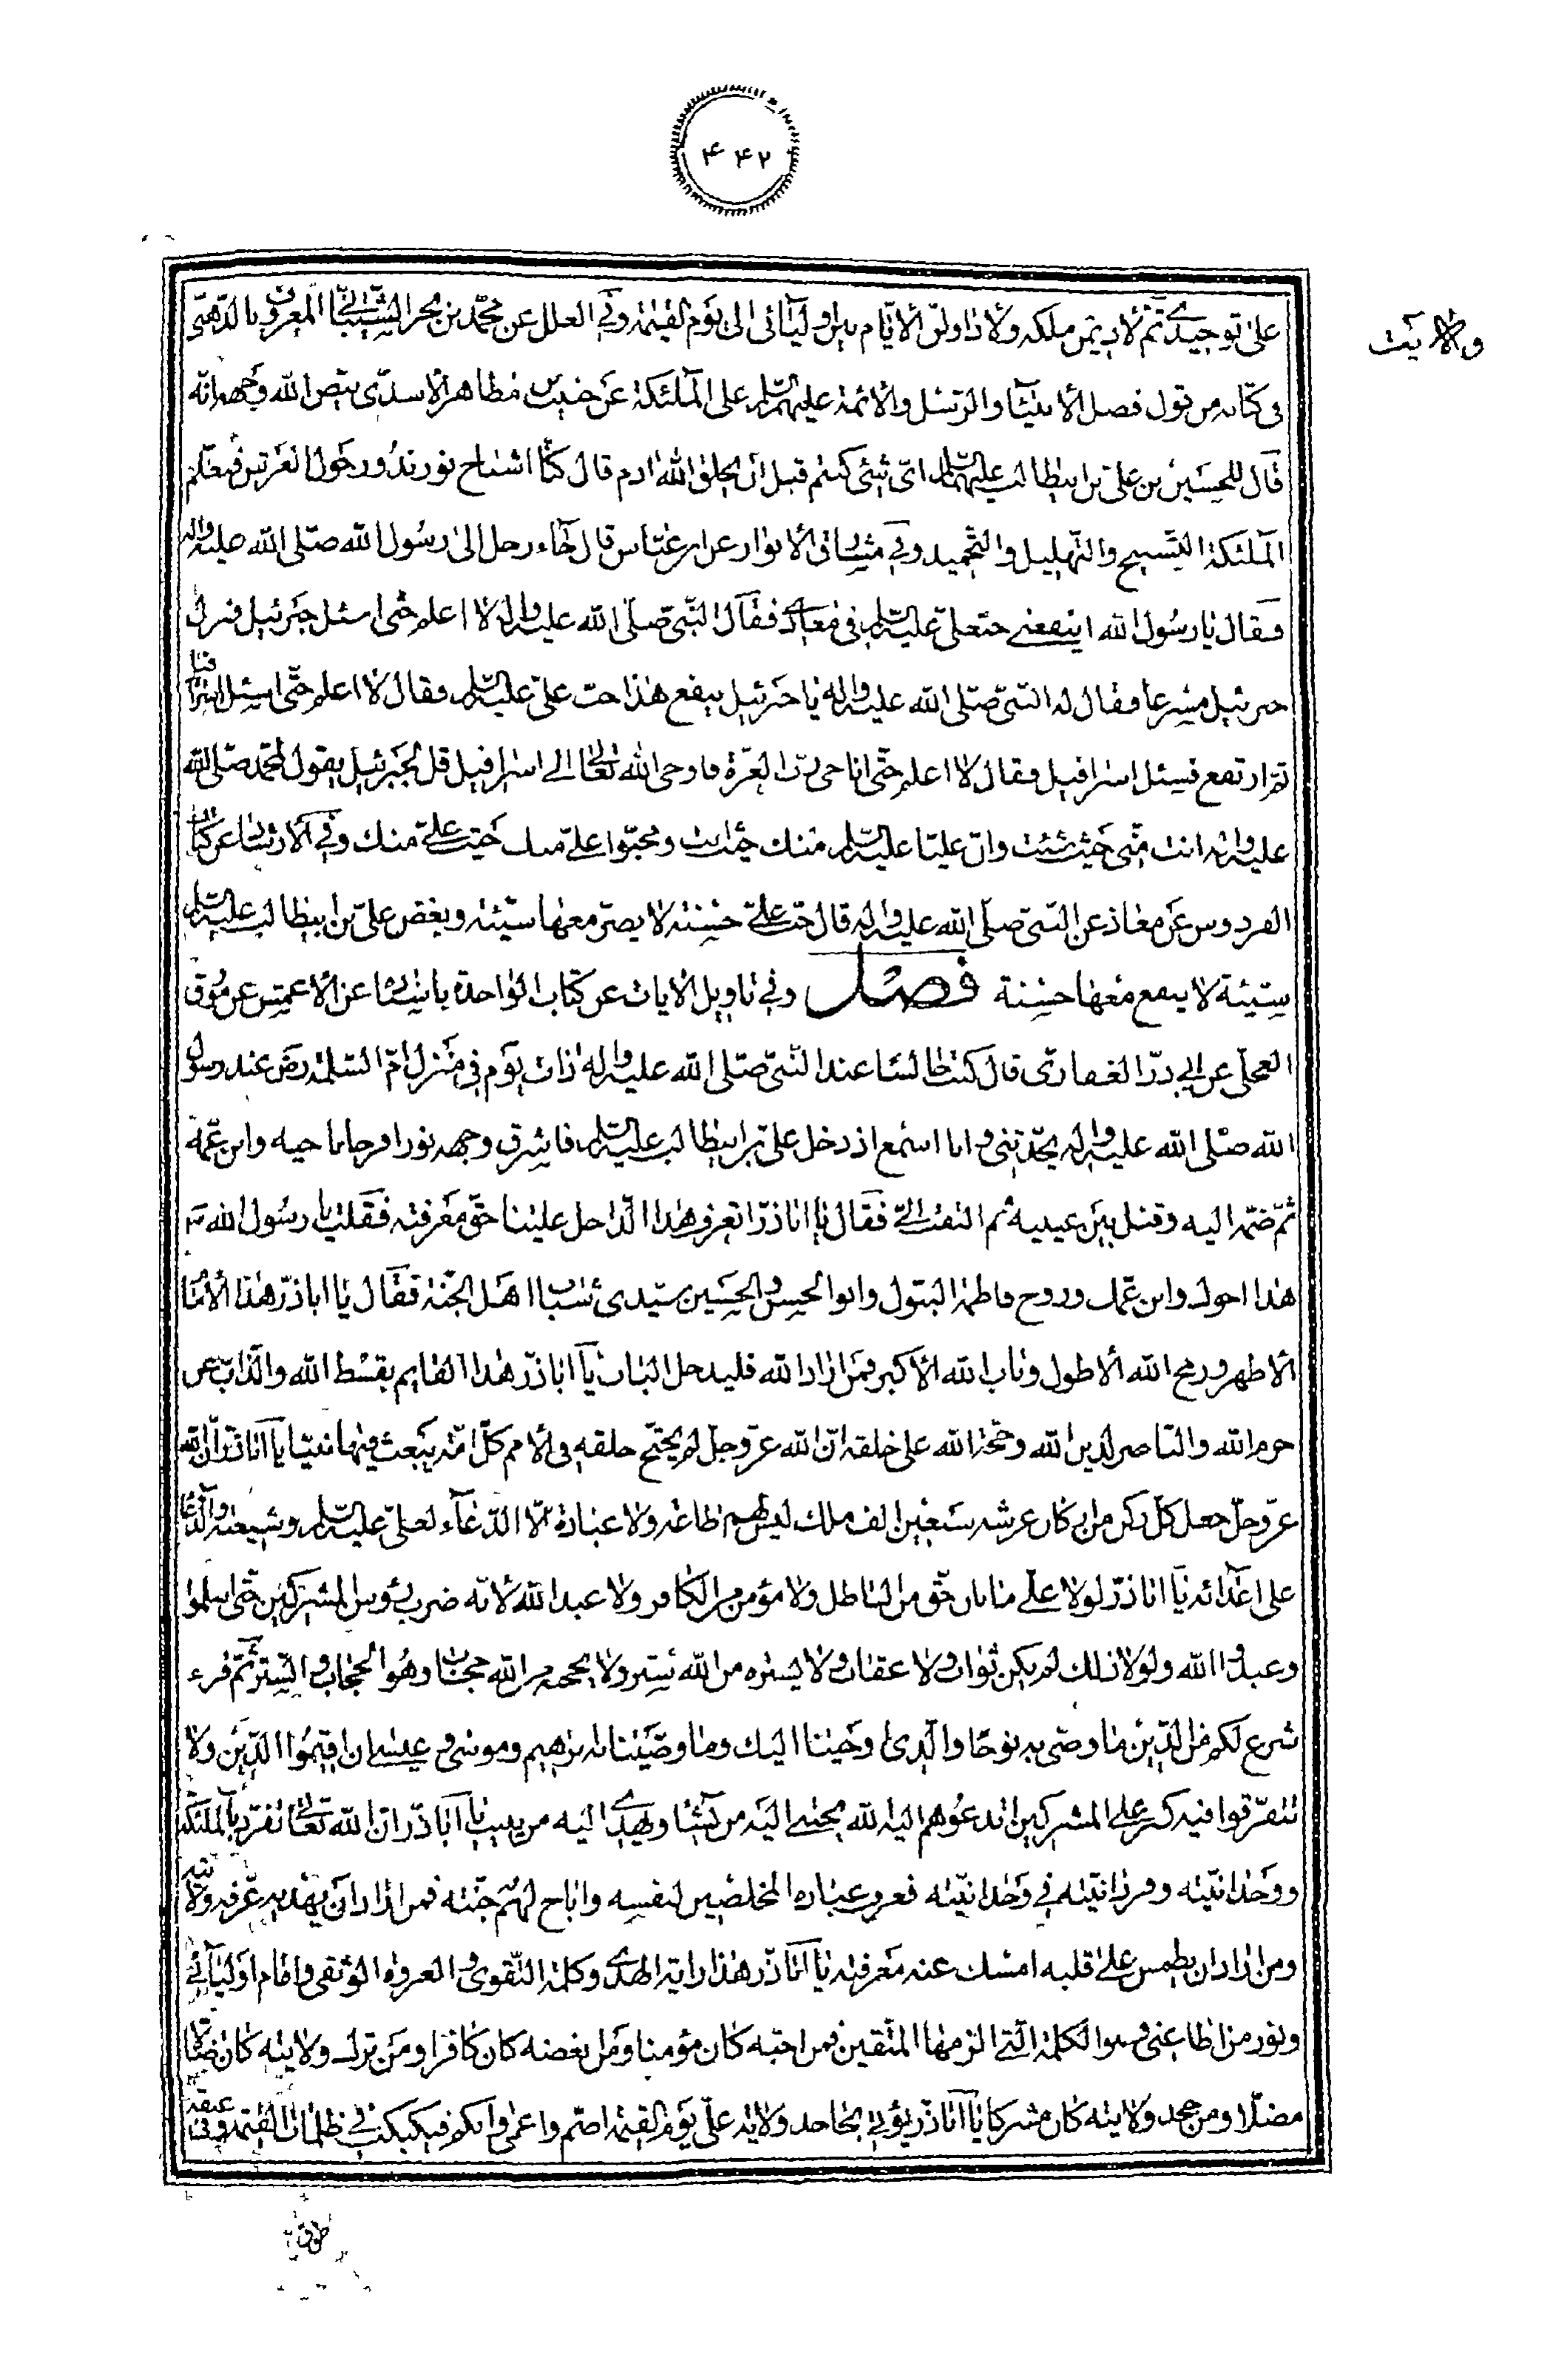 ۴۴۲
ولایت
على توحيدي ثم لاديمن ملكه ولاداولن الايام بين اوليائى الى يوم القيمة وفي العلل عن محمد بن بحر الشيبانى المعروف بالدهنى
فى كتابه من قول فضل الانبيا والرسل والائمة عليهم السلم على الملئكة عن حبيب بن مظاهر الاسدى بيض الله وجهه انه
قال للحسين بن على بن ابيطالب عليهما السلم اى شئ كنتم قبل ان يخلق الله ادم قال كنا اشباح نور ندور حول العرش فنعلم
الملئكة التسبيح والتهليل والتحميد وفي مشارق الانوار عن ابن عباس قال جاء رجل الى رسول الله صلى الله عليه واله
فقال يا رسول الله اينفعنى حب على عليه السلم فى معادى فقال النبى صلى الله عليه واله لا اعلم حتى اسئل جبرئيل فنزل
جبرئيل مسرعا فقال له النبى صلى الله عليه واله يا جبرئيل اينفع هذا حب على عليه السلم فقال لا اعلم حتى اسئل اسرافيل
ثم ارتفع فسئل اسرافيل فقال لا اعلم حتى اناجى رب العزة فاوحى الله تعالى الى اسرافيل قل لجبرئيل يقول لمحمد صلى الله
عليه واله انت منى حيث شئت وان عليا عليه السلم منك حيث انت ومحبوا على منك حيث على منك وفي الارشاد عن كتاب
الفردوس عن معاذ عن النبى صلى الله عليه واله قال حب على حسنة لا يضر معها سيئة وبغض على بن ابيطالب عليه السلم
سيئة لا ينفع معها حسنة فصل وفي تاويل الايات عن كتاب الواحدة باسناده عن الاعمش عن مورق
العجلى عن ابى ذر الغفارى قال كنت جالسا عند النبى صلى الله عليه واله ذات يوم فى منزل ام السلمة رض عند رسول
الله صلى الله عليه واله يحدثنى وانا اسمع اذ دخل على بن ابيطالب عليه السلم فاشرق وجهه نورا فرحا باخيه وابن عمه
ثم ضمه اليه وقبل بين عينيه ثم التفت الى فقال يا اباذر اتعرف هذا الداخل علينا حق معرفته فقلت يا رسول الله ص
هذا اخوك وابن عمك وزوج فاطمة البتول وابو الحسن والحسين سيدى شباب اهل الجنة فقال يا اباذر هذا الامام
الاطهر ورمح الله الاطول وباب الله الاكبر فمن اراد الله فليدخل الباب يا اباذر هذا القايم بقسط الله والذاب عن
حرم الله والناصر لدين الله وحجة الله على خلقه ان الله عز وجل لم يحتج خلقه فى الامم كل امة يبعث فيها نبيا يا اباذر ان الله
عز وجل جعل كل ركن من اركان عرشه سبعين الف ملك ليس لهم طاعة ولا عبادة الا الدعاء لعلى عليه السلم وشيعته والدعا
على اعدائه يا اباذر لولا على ما بان حق من الباطل ولا مؤمن من الكافر ولا عبد الله لانه ضرب رؤس المشركين حتى اسلموا
وعبدوا الله ولولا ذلك لم يكن ثواب ولا عقاب ولا يستره من الله ستر ولا يحجبه من الله حجاب وهو الحجاب والستر ثم قرء
شرع لكم من الدين ما وصى به نوحا والذى اوحينا اليك وما وصينا به ابرهيم وموسى وعيسى ان اقيموا الدين ولا
تتفرقوا فيه كبر على المشركين ما تدعوهم اليه الله يجتبى اليه من يشاء ويهدى اليه من ينيب يا اباذر ان الله تعالى تفرد بملكه
ووحدانيته وفردانيته فى وحدانيته فعرف عباده المخلصين لنفسه واباح لهم جنته فمن اراد ان يهديه عرفه ولايته
ومن اراد ان يطمس على قلبه امسك عنه معرفته يا اباذر هذا راية الهدى وكلمة التقوى والعروة الوثقى وامام اوليائى
ونور من اطاعنى وهو الكلمة التى الزمها المتقين فمن احبه كان مؤمنا ومن ابغضه كان كافرا ومن ترك ولايته كان ضالا
مضلا ومن جحد ولايته كان مشركا يا اباذر يؤتى بجاحد ولاية على يوم القيمة اصم واعمى وابكم فيكبكب فى ظلمات القيمة وفى عنقه
طوق